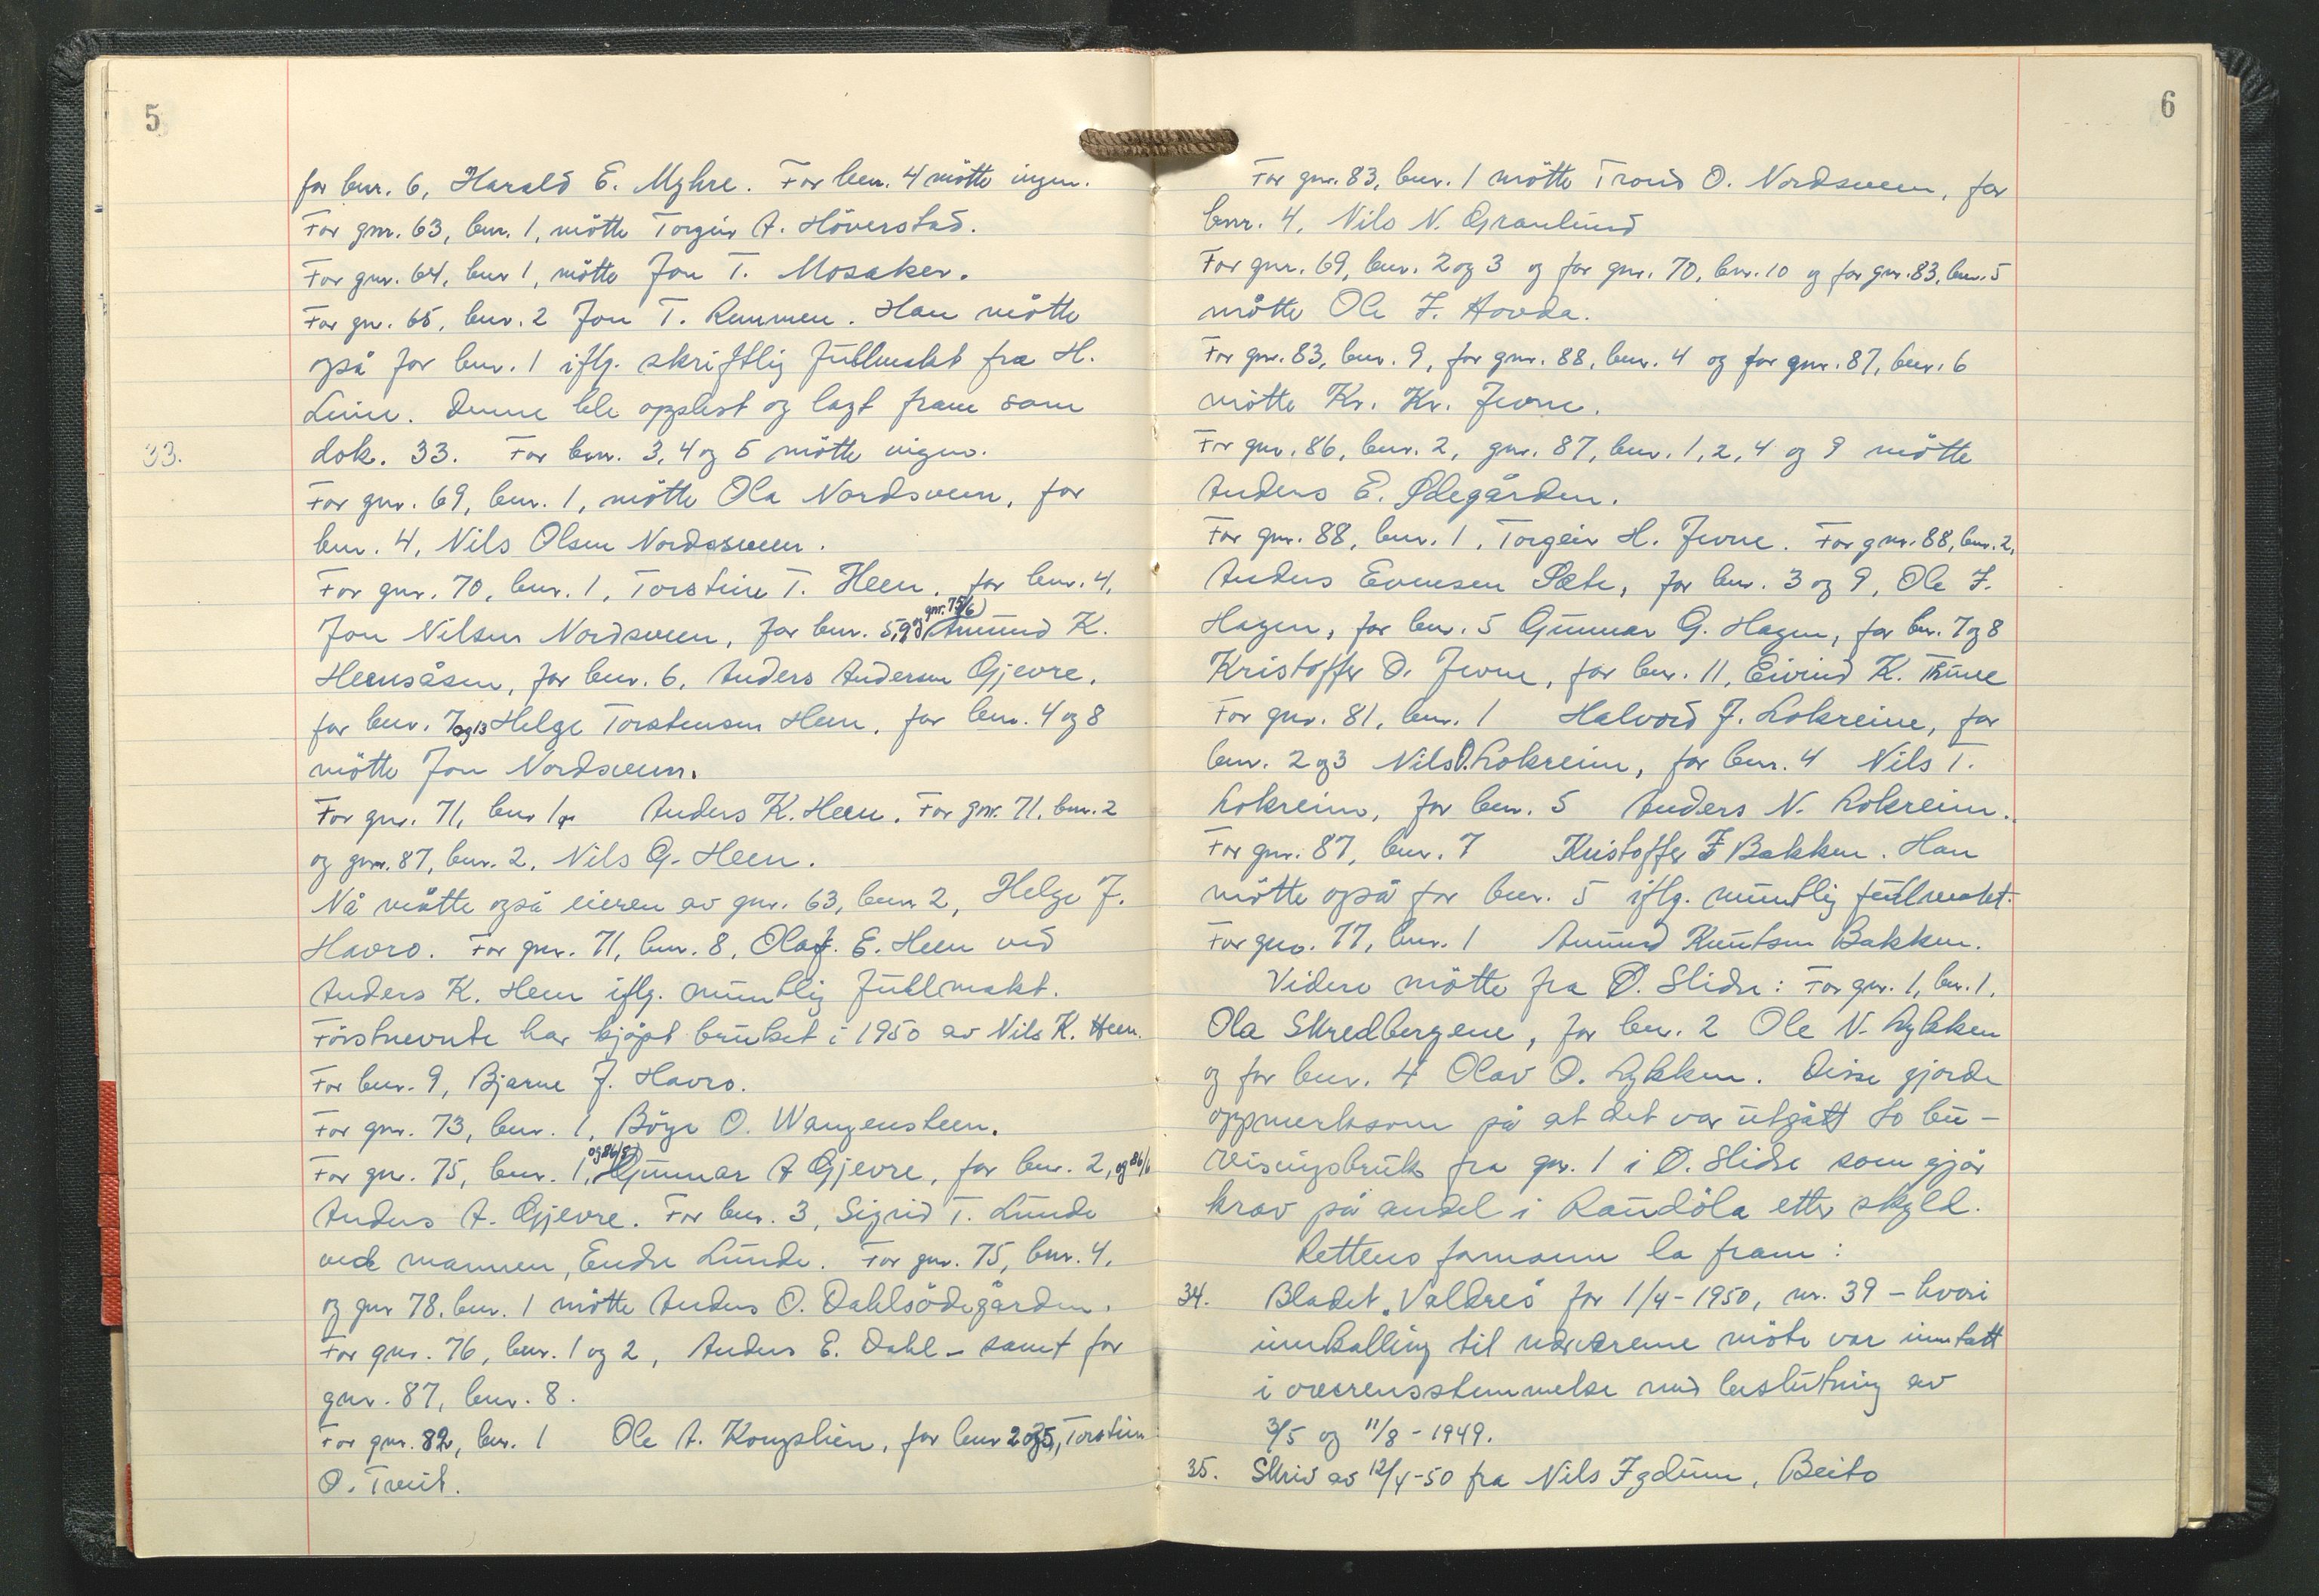 5
for bnr. 6, Harald E. Myhre. For bnr. 4 mötte ingen.
For gnr. 63, bnr. 1, mötte Torgeir A. Höverstad.
For gnr. 64, bnr 1, mötte Jon T. Mosaker.
For gnr. 65, bnr. 2 Jon T. Remmen. Han mötte
også for bnr. 1 iflg. skriftlig fullmakt fra H.
Leine. Denne ble opplest og lagt fram som
33.
dok. 33. For bnr. 3, 4 og 5 mötte ingen.
For gnr. 69, bnr. 1, mötte Ola Nordsveen, for
bnr. 4, Nils Olsen Nordsveen.
For gnr. 70, bnr. 1, Torstein T. Heen, for bnr. 4,
Jon Nilsen Nordsveen, for bnr. 5, 9 og gnr. 75/6) Amund K.
Heensåsen, for bnr. 6, Anders Andersen Gjevre,
for bnr. 7 og 13 Helge Torstensen Heen, for bnr. 4 og 8
mötte Jon Nordsveen.
For gnr. 71, bnr 1, Anders K. Heen. For gnr. 71, bnr. 2
og gnr. 87, bnr. 2, Nils G. Heen.
Nå mötte også eieren av gnr. 63, bnr 2, Helge J.
Havro. For gnr. 71, bnr. 8, Olaf. E. Heen ved
Anders K. Heen iflg. muntlig fullmakt.
Förstnevnte har kjöpt bruket i 1950 av Nils K. Heen.
For bnr. 9, Bjarne J. Havro.
For gnr. 73, bnr. 1, Böye O. Wangensteen.
For gnr. 75, bnr. 1, og 86/87) Gunnar A Gjevre, for bnr. 2, og 86/6
Anders A. Gjevre. For bnr. 3, Sigrid T. Lunde
ved mannen, Endre Lunde. For gnr. 75, bnr. 4,
og gnr 78, bnr. 1 mötte Anders O. Dahlsödegården.
For gnr. 76, bnr. 1 og 2, Anders E. Dahl – samt for
gnr. 87, bnr. 8.
For gnr. 82, bnr. 1 Ole A. Kongslien, for bnr 2 og 5, Torstein
O. Tveit.
6
For gnr. 83, bnr. 1 mötte Trond O. Nordsveen, for
bnr. 4, Nils N. Granlund
For gnr. 69, bnr. 2 og 3 og for gnr. 70, bnr. 10 og for gnr. 83, bnr. 5
mötte Ole J. Hovda.
For gnr. 83, bnr. 9, for gnr. 88, bnr. 4 og for gnr. 87, bnr. 6
mötte Kr. Kr. Jevne.
For gnr. 86, bnr. 2, gnr. 87, bnr. 1, 2, 4 og 9 mötte
Anders E. Ødegården.
For gnr. 88, bnr. 1, Torgeir H. Jevne. For gnr. 88, bnr. 2,
Anders Evensen Sæte, for bnr. 3 og 9, Ole J.
Hagen, for bnr. 5 Gunnar G. Hagen, for bnr. 7 og 8
Kristoffer O. Jevne, for bnr. 11, Eivind K. Thune
For gnr. 81, bnr. 1 Halvord J. Lokreine, for
bnr. 2 og 3 Nils O. Lokreim, for bnr. 4 Nils T.
Lokreim, for bnr. 5 Anders N. Lokreim.
For gnr. 87, bnr. 7 Kristoffer J Bakken. Han
mötte også for bnr. 5 iflg. muntlig fullmakt.
For gnr. 77, bnr. 1 Amund Knutsen Bakken.
Videre mötte fra Ø. Slidre: For gnr. 1, bnr. 1,
Ola Skredbergene, for bnr. 2 Ole N. Lykken
og for bnr. 4 Olav O. Lykken. Disse gjorde
oppmerksom på at det var utgått to bu-
reisingsbruk fra gnr. 1 i Ø. Slidre som gjör
krav på andel i Raudöla etter skyld.
Rettens formann la fram:
34. Bladet „Valdres" for 1/4 - 1950, nr. 39 – hvori
innkalling til nærværene möte var inntatt
i overensstemmelse med beslutning av
3/5 og 11/8 - 1949.
35. Skriv av 12/4-50 fra Nils Igdum, Beito